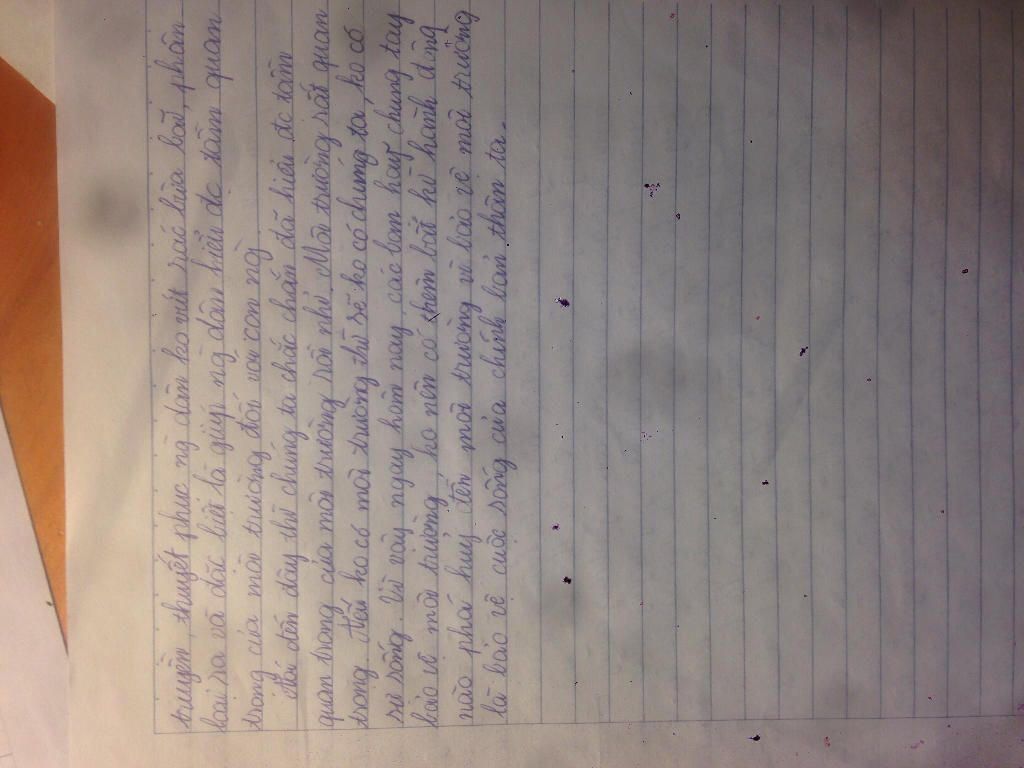 truyền, thuyết phục ng dân ko vứt rác bừa bãi, phân
loại rác và đặc biệt là giúp ng dân hiểu đc tầm quan
trọng của môi trường đối với con ng.
Đến đây thì chúng ta chắc chắn đã hiểu đc tầm
quan trọng của môi trường rồi nhỉ. Môi trường rất quan
trọng. Nếu ko có môi trường thì sẽ ko có chúng ta, ko có
sự sống. Vì vậy ngay hôm nay, các bạn hãy chung tay
bảo vệ môi trường, ko nên có thêm bất kì hành động
nào phá huỷ đến môi trường vì bảo vệ môi trường
là bảo vệ cuộc sống của chính bản thân ta.